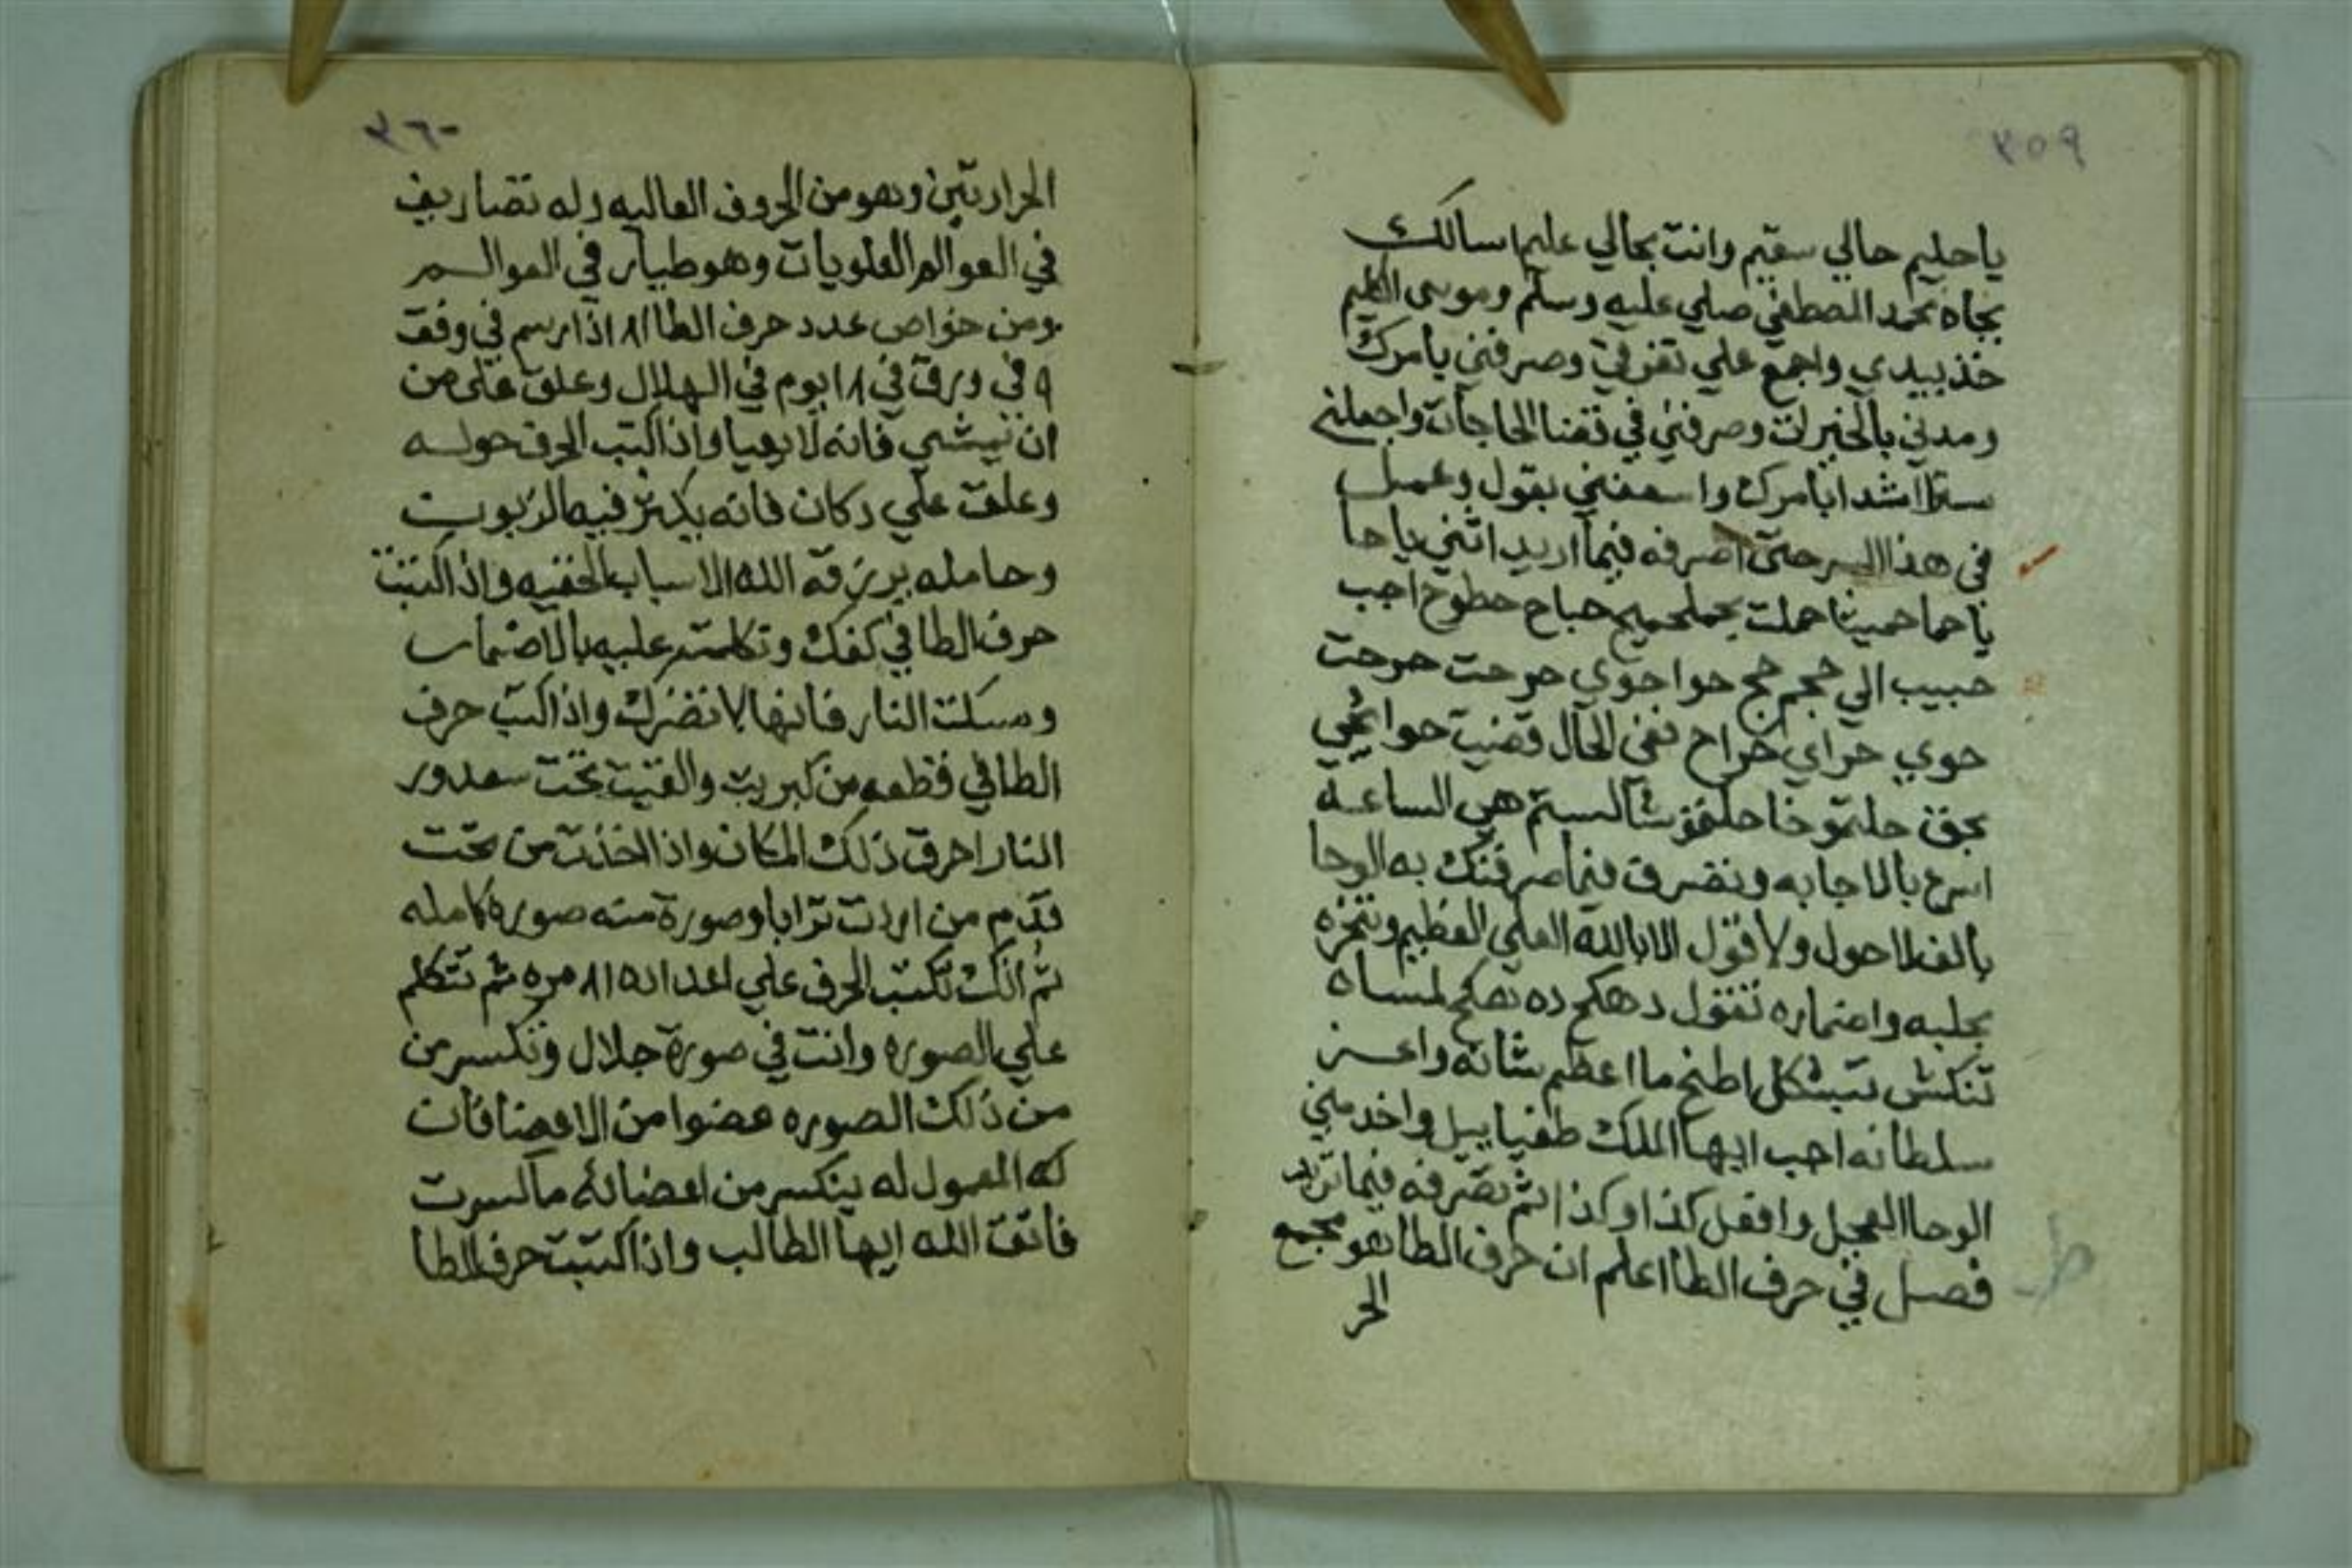 ٣٥٩
ياحليم حالي سقيم وانت بحالي عليم اسالك
بجاه محمد المصطفي صلي عليه وسلم وموسى الكليم
خذ بيدي واجمع علي تفرقي وصرفني بامرك
ومدني بالخيرات وصرفني في قضا الحاجات واجعلني
بامرك واسعفني بقول وعمل
في هذا السر حتى اصرفه فيما اريد ياحا
ياحما حميثا حملت حباح حطوح اجب
حبيب الي حجم حج حوا جوي حرحت حرحت
حوي حراي حراح ففى الحال قضيت حوائجي
بحق هي الساعه
اسرع بالاجابه وتصرف فيما صرفتك به الوحا
بالف لا حول ولا قول الا بالله العلي العظيم وتبخره
بجلبه واضماره تقول دهكح ده
اطنح ما اعظم شانه واعز
سلطانه اجب ايها الملك طفياييل واخدمني
الوحا العجل وافعل كذا وكذا ثم تصرفه فيما تريد
فصل في حرف الطا اعلم ان حرف الطا هو مجمع
الحر
ط
٣٦٠
الحرارتين وهو من الحروف العاليه وله تصاريف
في العوالم العلويات وهو طيار في العوالم
ومن خواص عدد حرف الطا ١٨ اذا رسم في وفق
٩ في ورق في ١٨ يوم في الهلال وعلق على من
ان يمشي فانه لا يعيا واذا كتب الحرف حوله
وعلق علي دكان فانه يكثر فيه الزبون
وحامله يرزقه الله الاسباب الخفيه واذا كتبت
حرف الطا في كفك وتكلمت عليه بالاضمار
ومسكت النار فانها لا تضرك واذا كتب حرف
الطا في قطعه من كبريت والقيت تحت
النار احرق ذلك المكان واذا اخذت من تحت
قدم من اردت ترابا وصورة منه صوره كامله
ثم انك تكتب الحرف علي اعداده ١٨ مره ثم تتكلم
علي الصوره وانت في صورة جلال وتكسر من
من ذلك الصوره عضوا من الاعضا فان
كه المعمول له ينكسر من اعضائه ما كسرت
فاتق الله ايها الطالب واذا كتبت حرف الطا